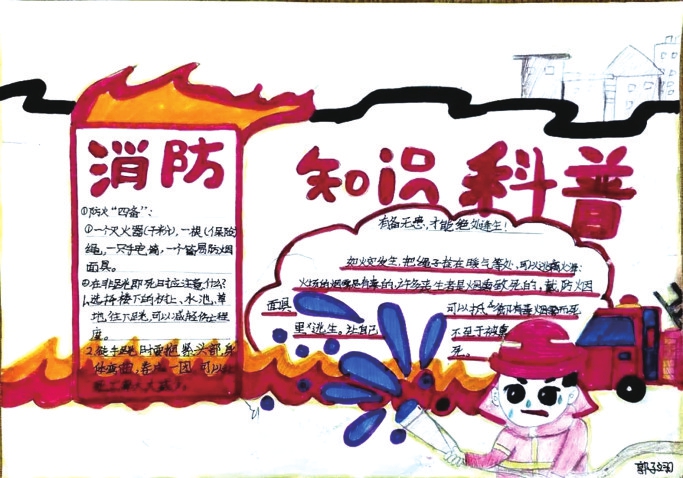 消防
知识科普
①防火“四备”：
①一个灭火器(干粉)，一根(保险
绳，一只手电筒，一个简易防烟
面具。
②在非跳即死时应注意什么？
1.选择楼下的 上、水池、草
地，往下跳，可以减轻伤亡程
度。
2. 跳时要抱紧头部，身
体弯曲， 成一团，可以
有备无患，才能绝处逢生！
如火灾发生，把绳子拴在暖气等处，可以逃离火海；
火场的烟雾是有毒的，许多丧生者是烟雾致死的，戴防烟
面具 可以抵御有毒烟雾而死
里逃生，让自己 不至于被熏
死。